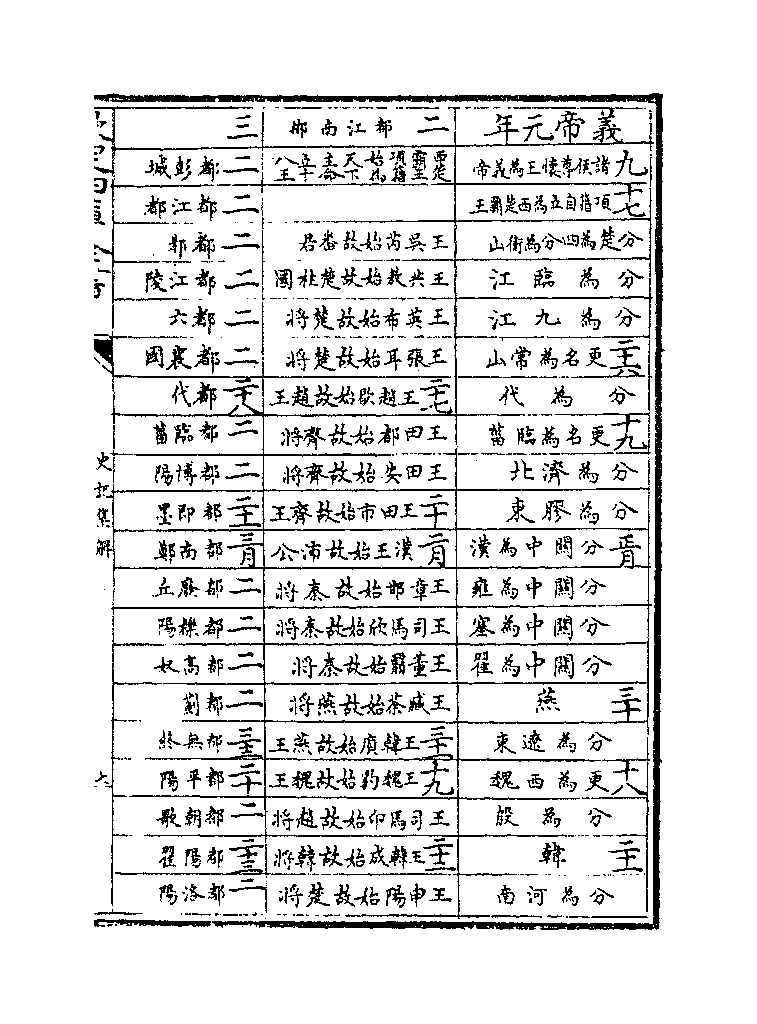 義帝元年
九 諸侯尊懷王為義帝
十七 項籍自立為西楚霸王
分楚為四分為衡山
分為臨江
分為九江
二十六 更名為常山
分為代
十九 更名為臨菑
分為濟北
分為膠東
正月 分關中為漢
分關中為雍
分關中為塞
分關中為翟
三十 燕
分為遼東
十八 更為西魏
分為殷
二十一 韓
分為河南
二 都江南郴
西楚霸王項籍始為天下主命立十八王
王吳芮始故番君
王共敖始故楚柱國
王英布始故楚將
王張耳始故楚將
二十七 王趙歇始故趙王
王田都始故齊將
王田安始故齊將
二十 王田市始故齊王
二月 漢王始故沛公
王章邯始故秦將
王司馬欣始故秦將
王董翳始故秦將
王臧荼始故燕將
三十一 王韓廣始故燕王
十九 王魏豹始故魏王
王司馬卬始故趙將
二十二 王韓成始故韓將
王申陽始故楚將
三
二 都彭城
二 都江都
二 都邾
二 都江陵
二 都六
二 都襄國
二十八 都代
二 都臨菑
二 都博陽
二十一 都即墨
三月 都南鄭
二 都廢丘
二 都櫟陽
二 都高奴
二 都薊
三十二 都無終
二十 都平陽
二 都朝歌
二十三 都陽翟
二 都洛陽
欽定四庫全書
史記集解
六